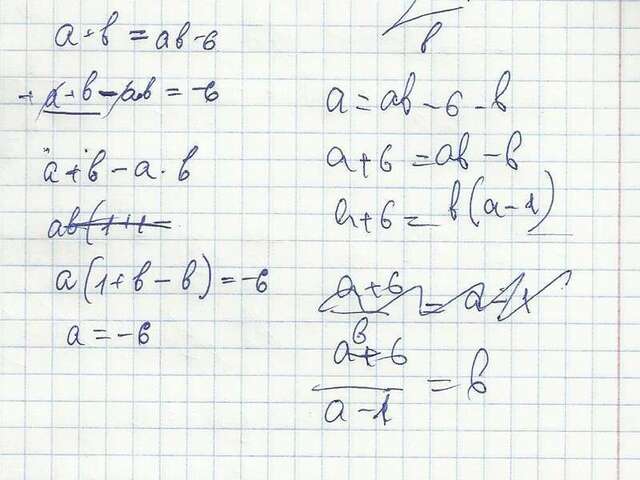 a+b = ab-6
+ a+b - ab = -6
a+b - a·b
ab(1+1-
a(1+b-b) = -6
a = -6
b
a = ab - 6 - b
a+6 = ab - b
a+6 = b(a-1)
a+6 = a-1
a+6 = b
a-1